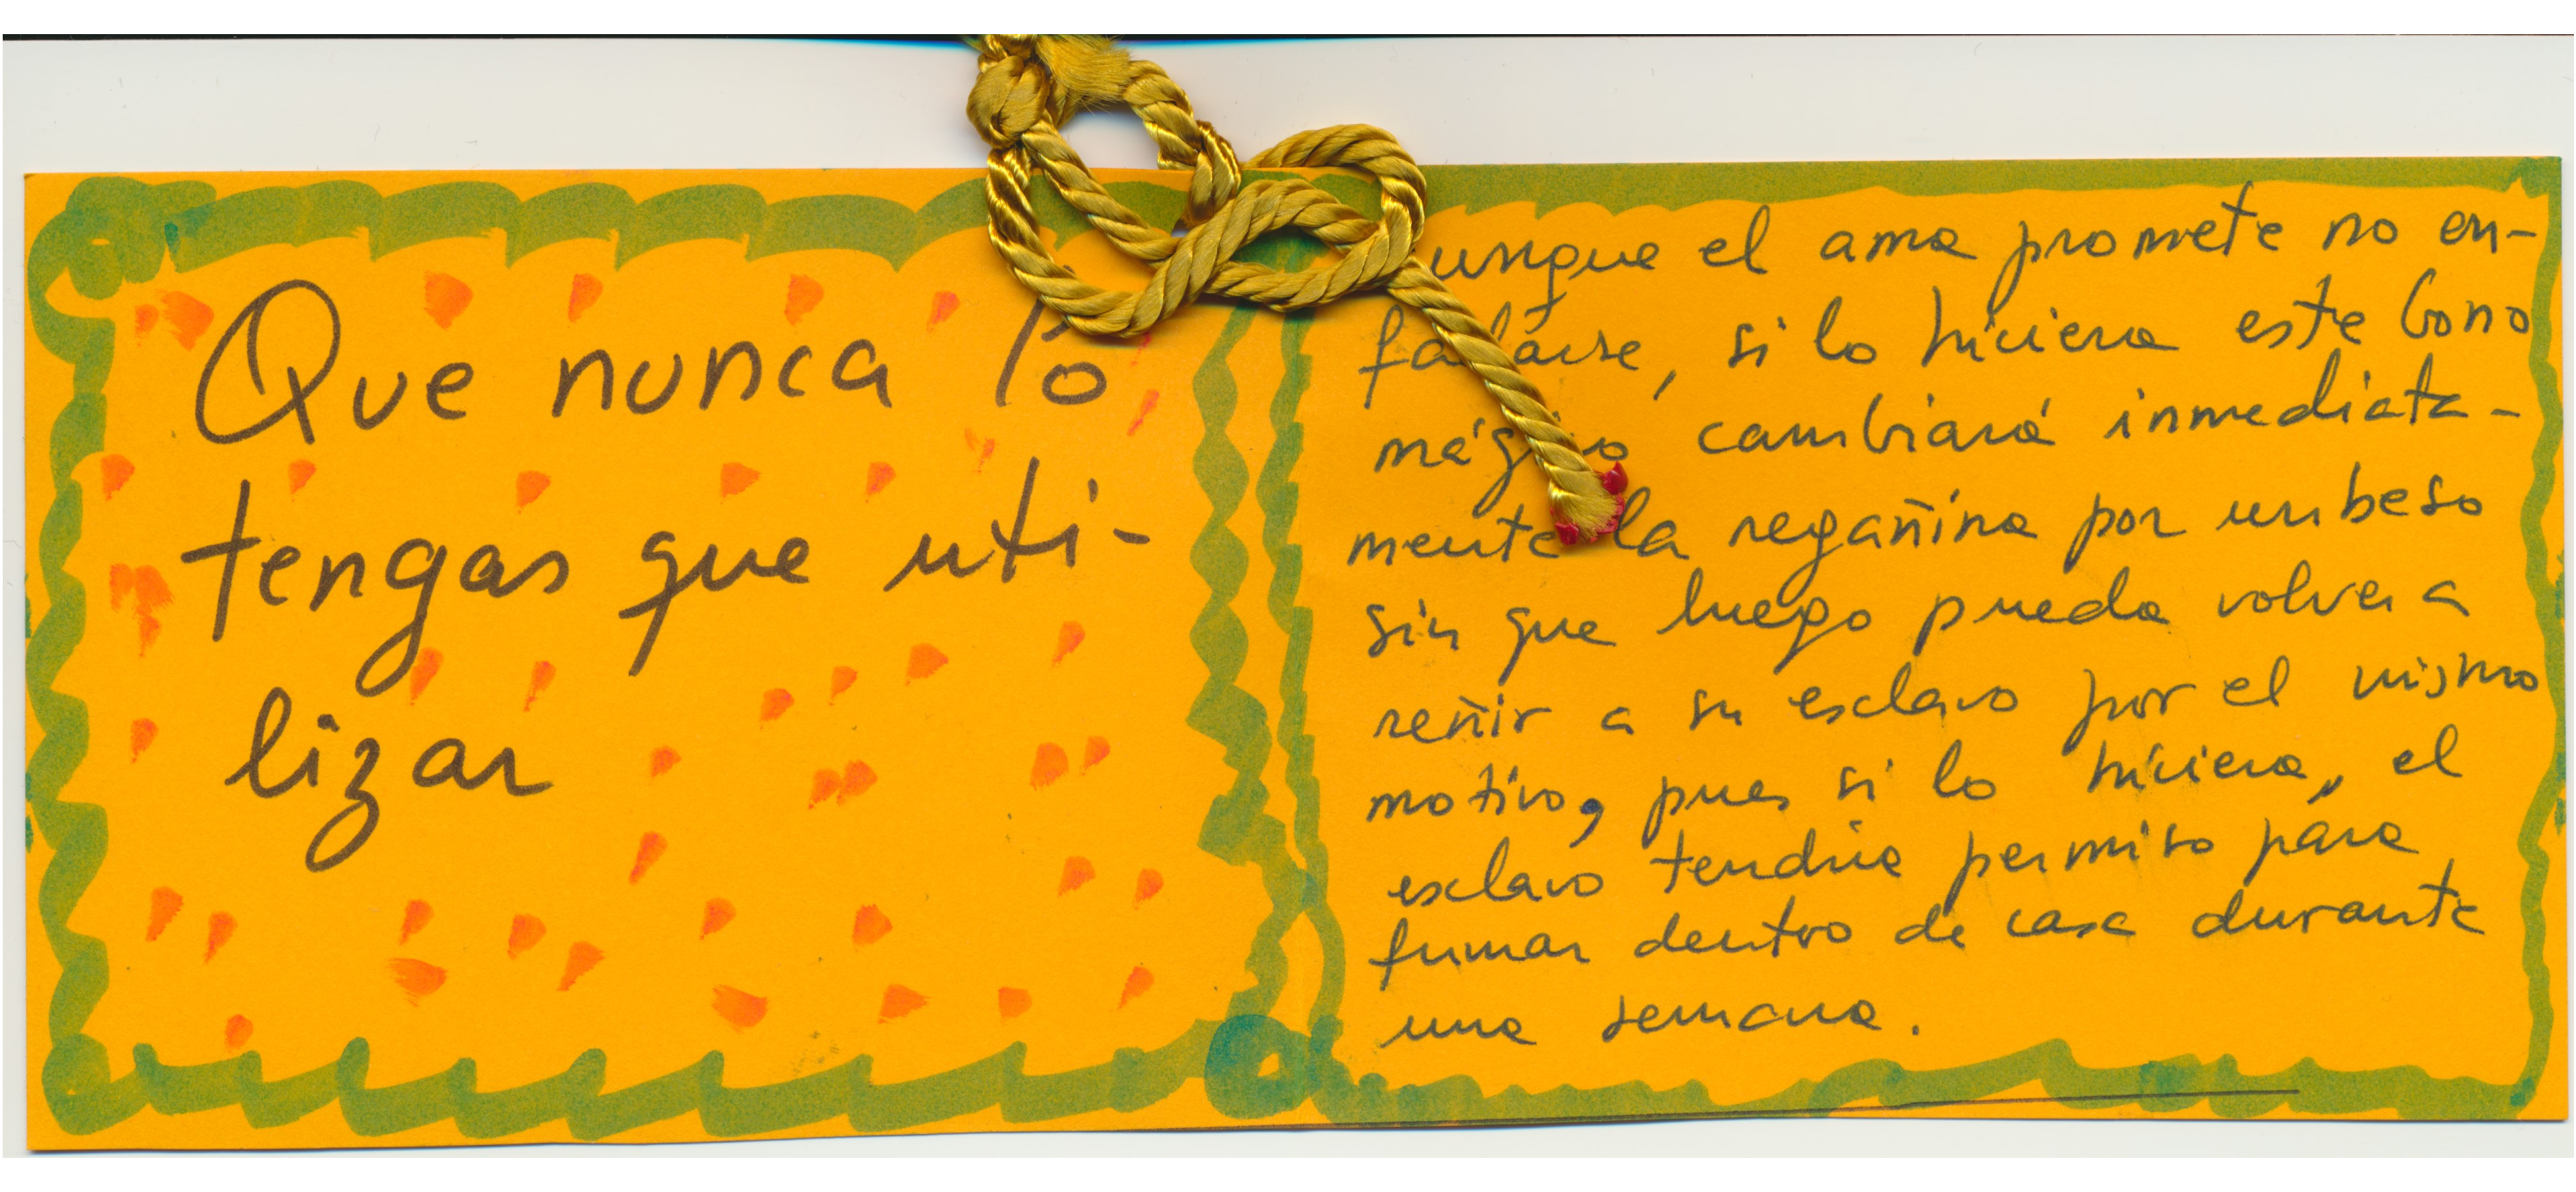 Que nunca lo
tengas que uti-
lizar
unque el ama promete no en-
fadarse, si lo hiciera este bono
mágico cambiará inmediata-
mente la regañina por un beso
sin que luego pueda volver a
reñir a su esclavo por el mismo
motivo, pues si lo hiciera, el
esclavo tendría permiso para
fumar dentro de casa durante
una semana.